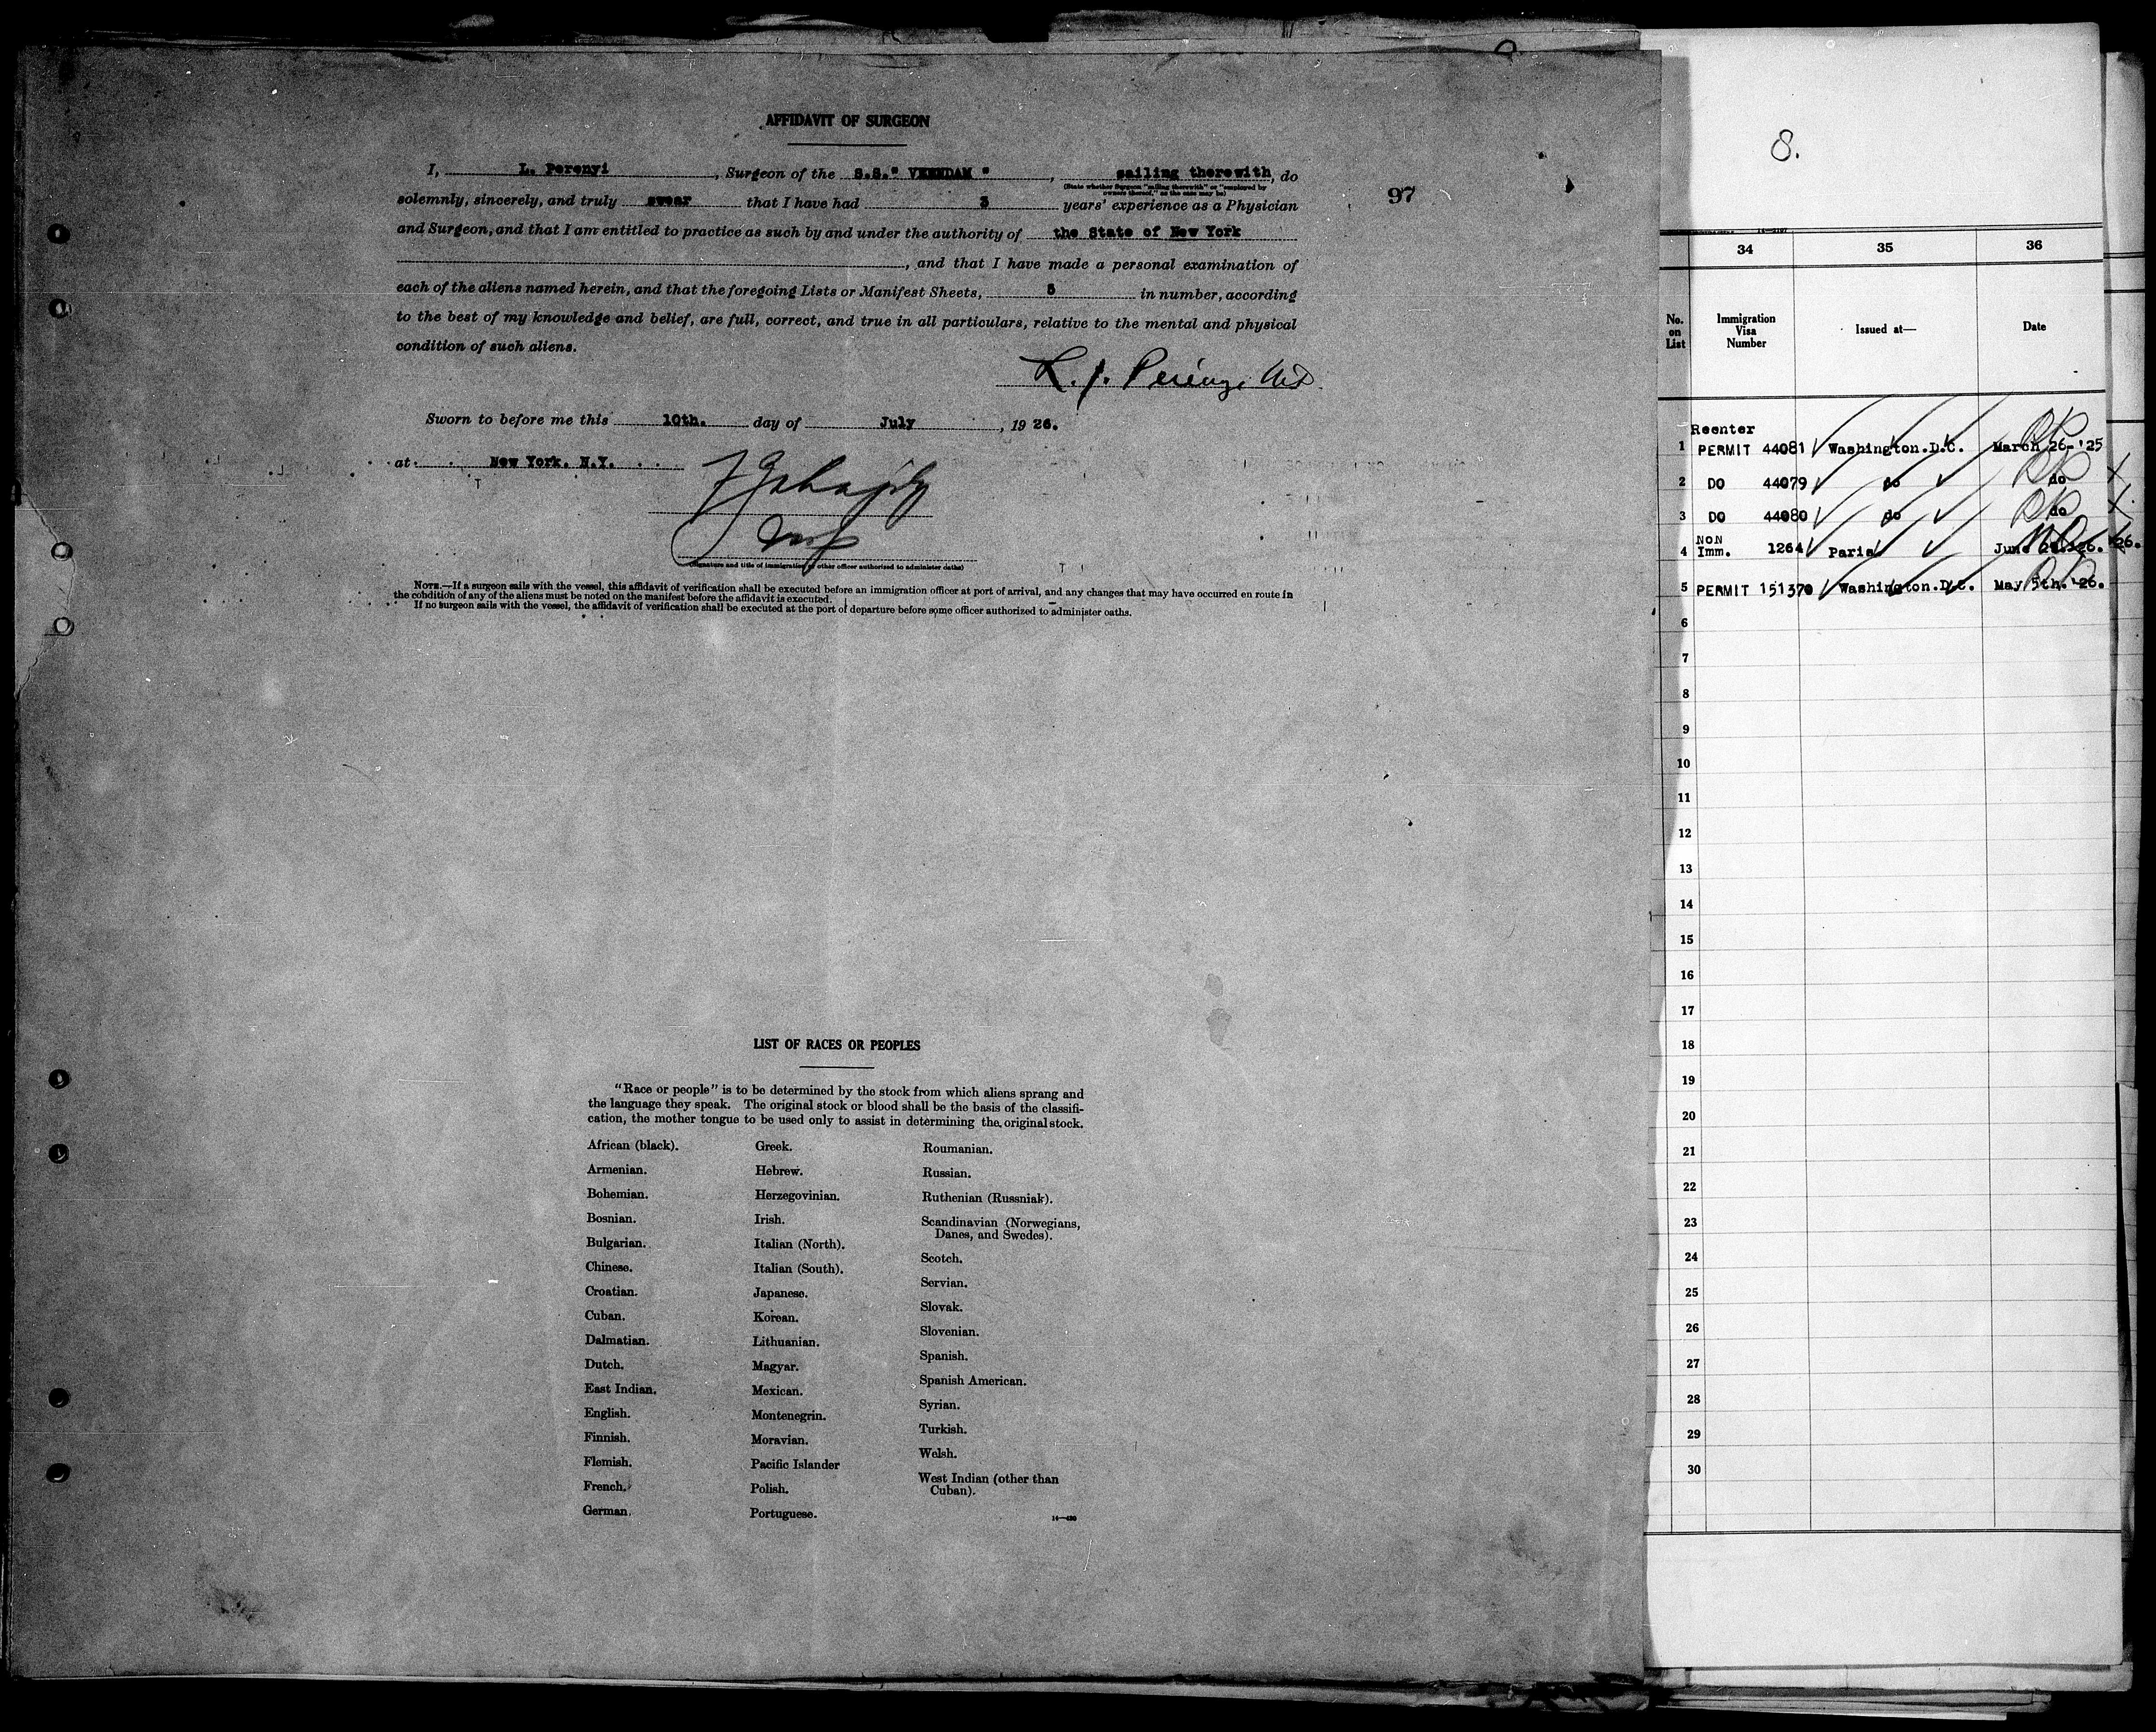 AFFIDAVIT OF SURGEON
I, L. Perenyi, Surgeon of the S.S." VEENDAM ", sailing therewith, do
(State whether Surgeon "sailing therewith" or "employed by owners thereof," as the case may be)
solemnly, sincerely, and truly swear that I have had 3 years' experience as a Physician
97
and Surgeon, and that I am entitled to practice as such by and under the authority of the State of New York
, and that I have made a personal examination of
each of the aliens named herein, and that the foregoing Lists or Manifest Sheets, 5 in number, according
to the best of my knowledge and belief, are full, correct, and true in all particulars, relative to the mental and physical
condition of such aliens.
L. J. Perenyi MD
Sworn to before me this 10th. day of July, 19 26.
at New York. N.Y.
(Signature and title of immigration or other officer authorized to administer oaths)
NOTE.—If a surgeon sails with the vessel, this affidavit of verification shall be executed before an immigration officer at port of arrival, and any changes that may have occurred en route in
the condition of any of the aliens must be noted on the manifest before the affidavit is executed.
If no surgeon sails with the vessel, the affidavit of verification shall be executed at the port of departure before some officer authorized to administer oaths.
LIST OF RACES OR PEOPLES
"Race or people" is to be determined by the stock from which aliens sprang and
the language they speak. The original stock or blood shall be the basis of the classifi-
cation, the mother tongue to be used only to assist in determining the original stock.
African (black).
Armenian.
Bohemian.
Bosnian.
Bulgarian.
Chinese.
Croatian.
Cuban.
Dalmatian.
Dutch.
East Indian.
English.
Finnish.
Flemish.
French.
German.
Greek.
Hebrew.
Herzegovinian.
Irish.
Italian (North).
Italian (South).
Japanese.
Korean.
Lithuanian.
Magyar.
Mexican.
Montenegrin.
Moravian.
Pacific Islander
Polish.
Portuguese.
Roumanian.
Russian.
Ruthenian (Russniak).
Scandinavian (Norwegians,
Danes, and Swedes).
Scotch.
Servian.
Slovak.
Slovenian.
Spanish.
Spanish American.
Syrian.
Turkish.
Welsh.
West Indian (other than
Cuban).
8.
34 35 36
No. on List
Immigration Visa Number
Issued at—
Date
Reenter
1 PERMIT 44081 Washington.D.C. March 26-'25
2 DO 44079 do do
3 DO 44080 do do
NON
4 Imm. 1264 Paris June '26. '26.
5 PERMIT 151370 Washington.D.C. May 5th.'26.
6
7
8
9
10
11
12
13
14
15
16
17
18
19
20
21
22
23
24
25
26
27
28
29
30